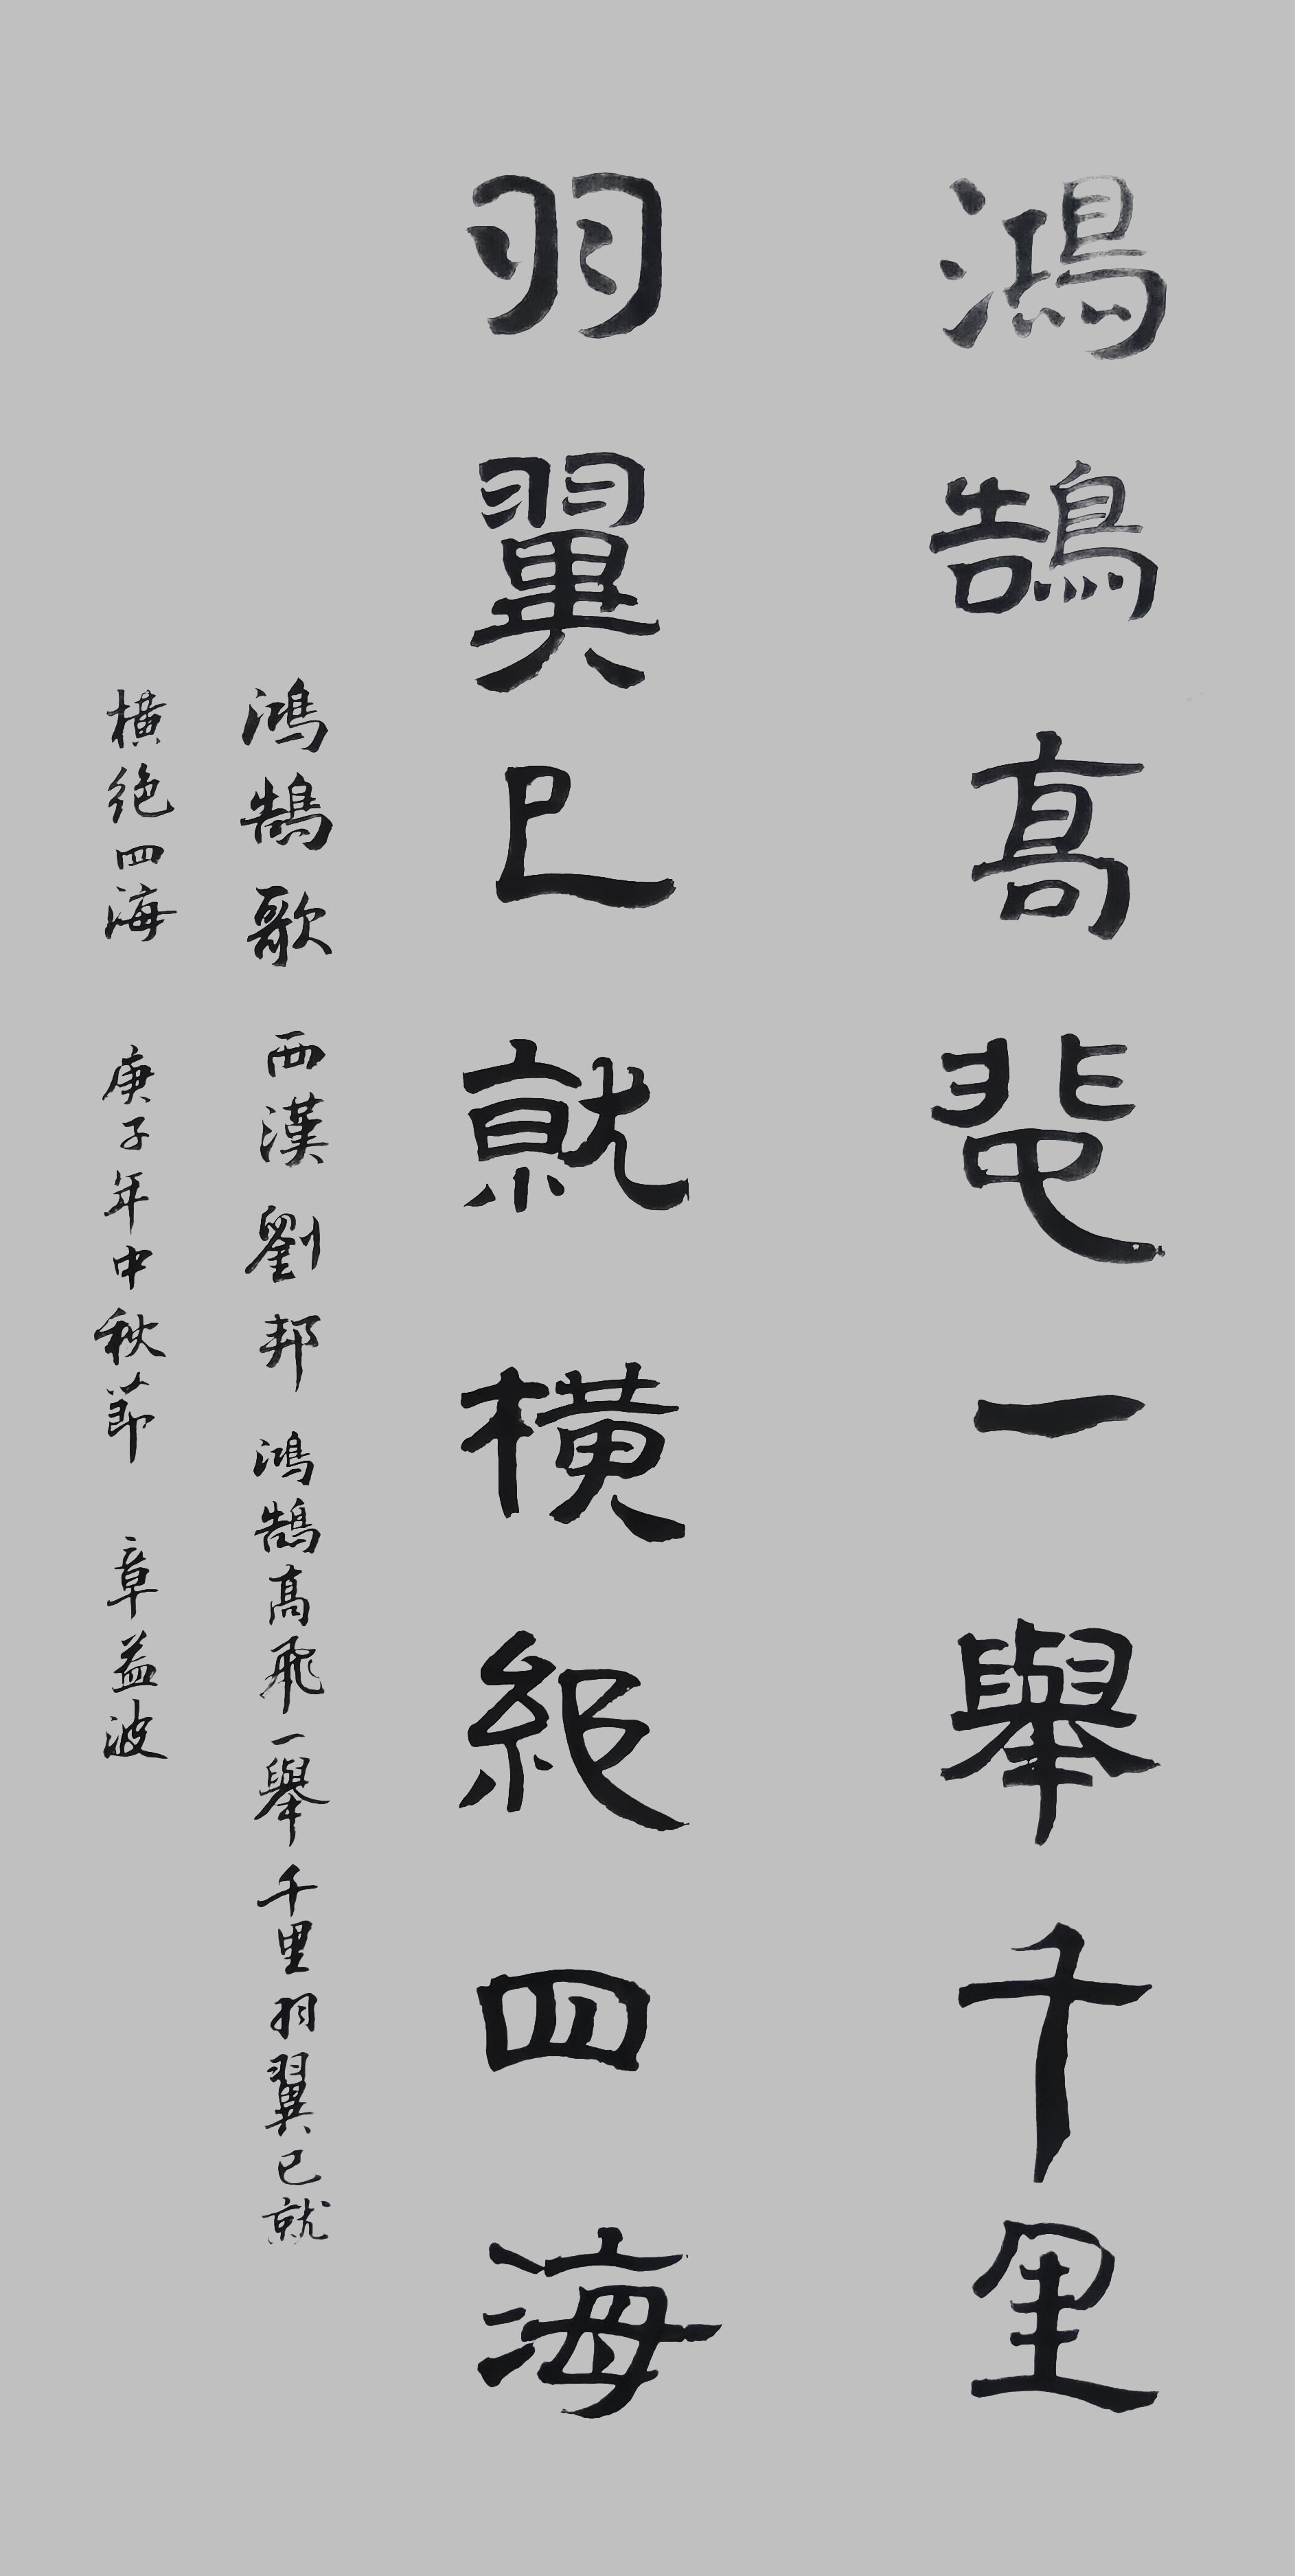 鴻鵠高蜚一舉千里
羽翼已就橫絕四海
鴻鵠歌 西漢 劉邦 鴻鵠高飛一舉千里羽翼已就
橫絕四海 庚子年中秋節 章益波